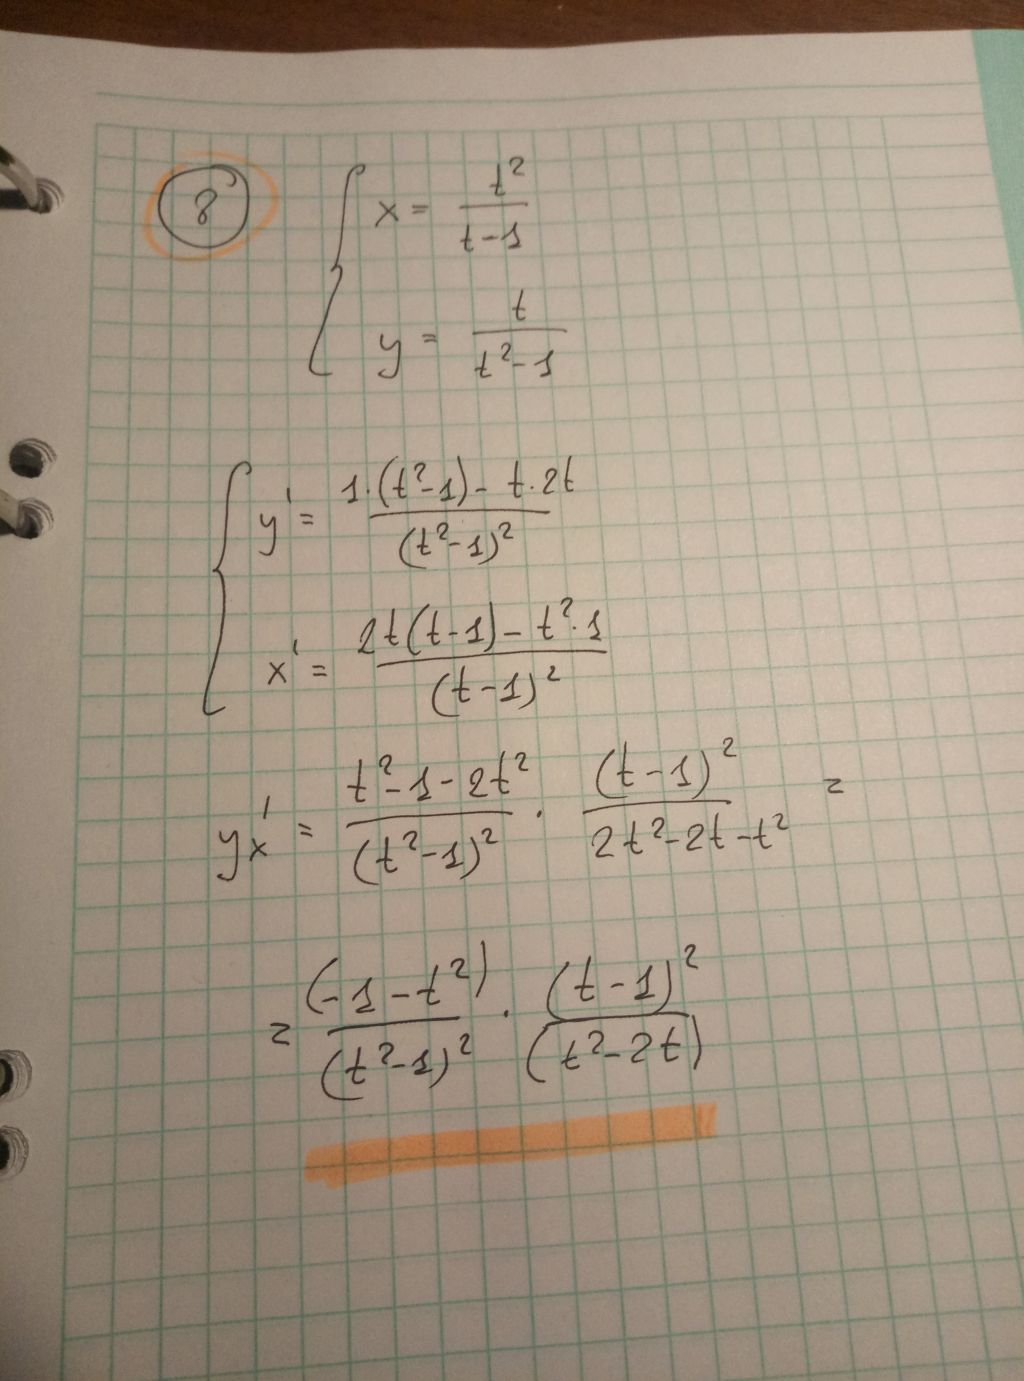 8
x = t²/(t-1)
y = t/(t²-1)
y' = (1·(t²-1) - t·2t)/(t²-1)²
x' = (2t(t-1) - t²·1)/(t-1)²
y'x = (t²-1-2t²)/(t²-1)² · (t-1)²/(2t²-2t-t²) =
= (-1-t²)/(t²-1)² · (t-1)²/(t²-2t)